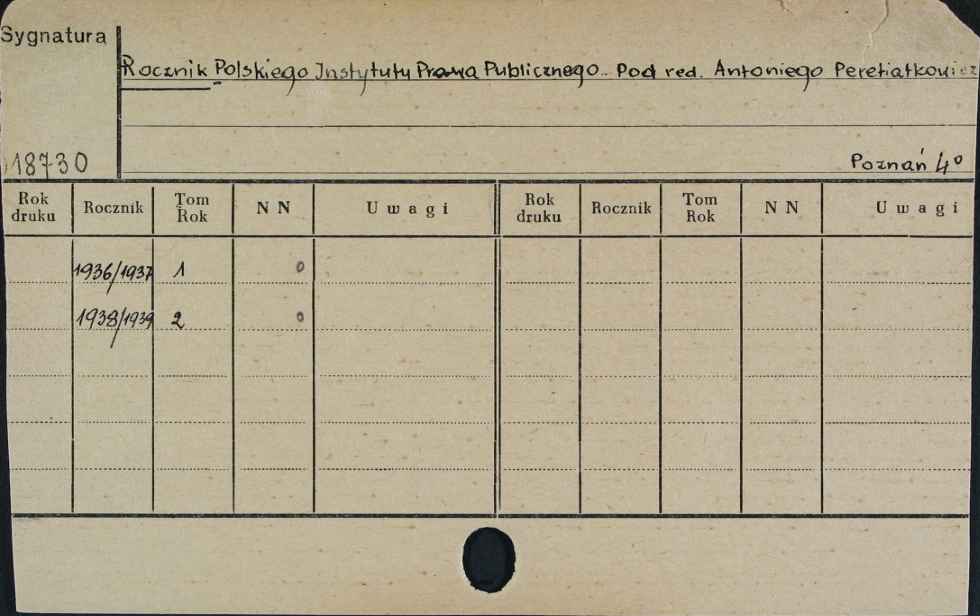 Sygnatura
Rocznik Polskiego Instytutu Prawa Publicznego. Pod red. Antoniego Peretiatkowicz
18730
Poznań 4°
Rok druku Rocznik Tom Rok NN Uwagi Rok druku Rocznik Tom Rok NN Uwagi
1936/1937 1 0
1938/1939 2 0